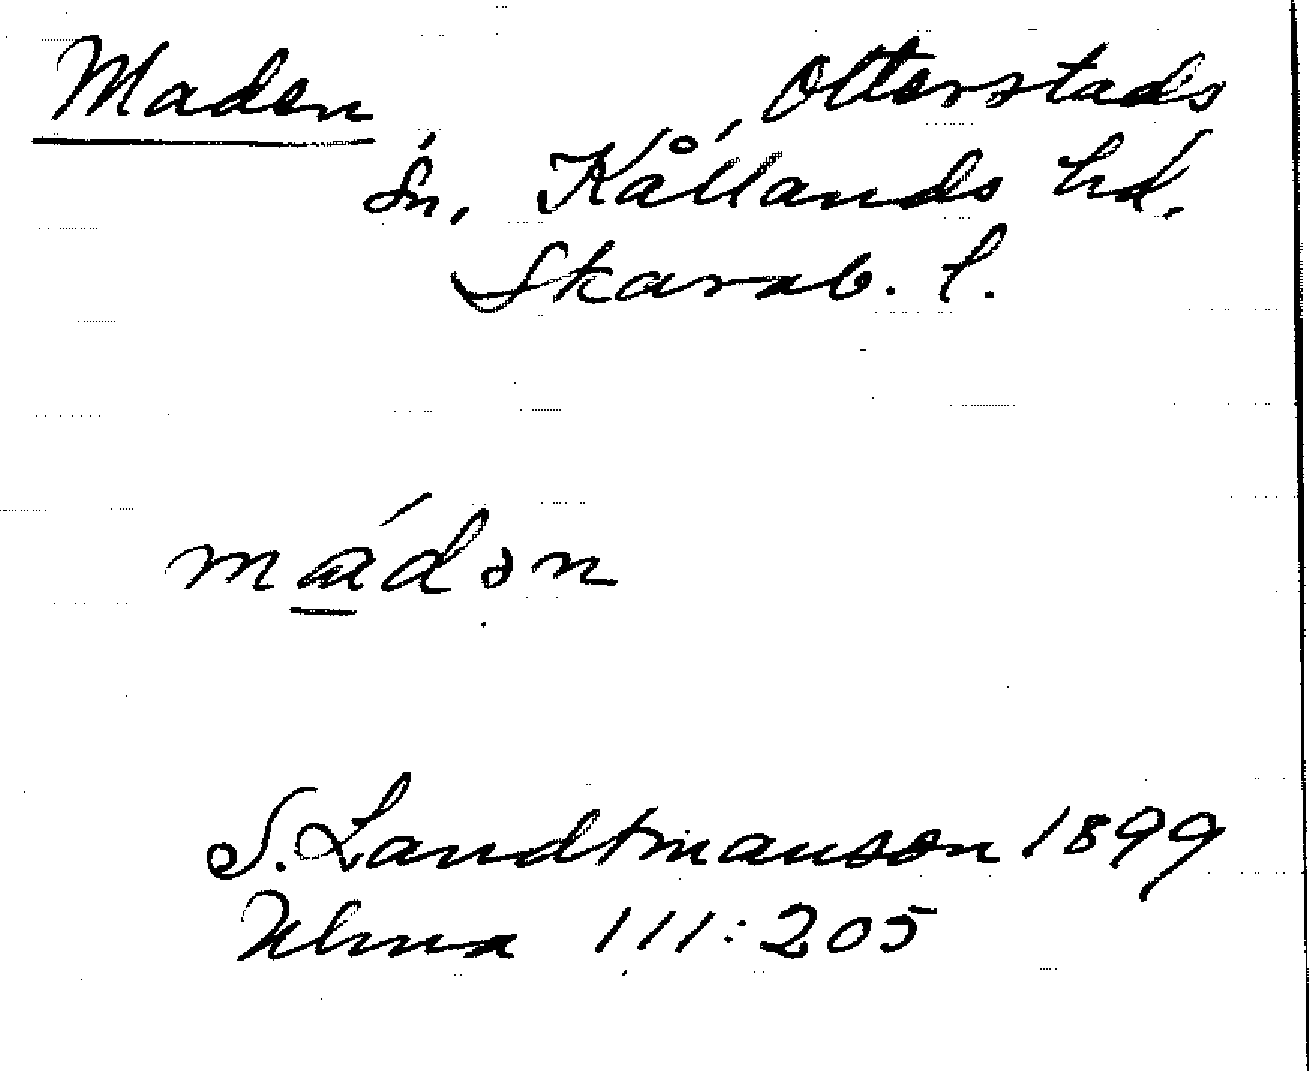 Maden Otterstads
sn, Kållands hd.
Skarab. l.
mádən
S. Landtmanson 1899
Ulma 111:205